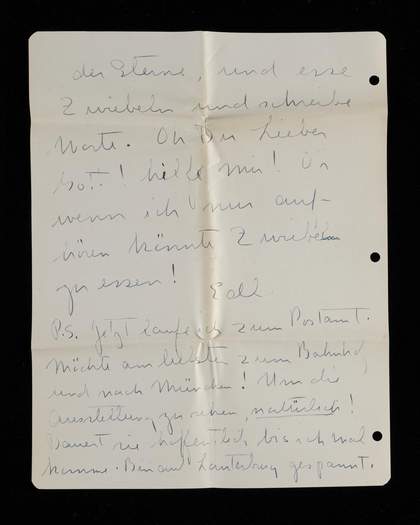 der Sterne, und esse
Zwiebeln und schreibe
Worte. Oh Du Lieber
Gott! hilf mir! Oh
wenn ich nur auf-
hören könnte Zwiebeln
zu essen!
P.S. Jetzt laufe ich zum Postamt.
Möchte am liebsten zum Bahnhof
und nach München! Um die
Ausstellung zu sehen, natürlich!
Dauert sie hoffentlich bis ich mal
komme. Bin auf Lauterburg gespannt.